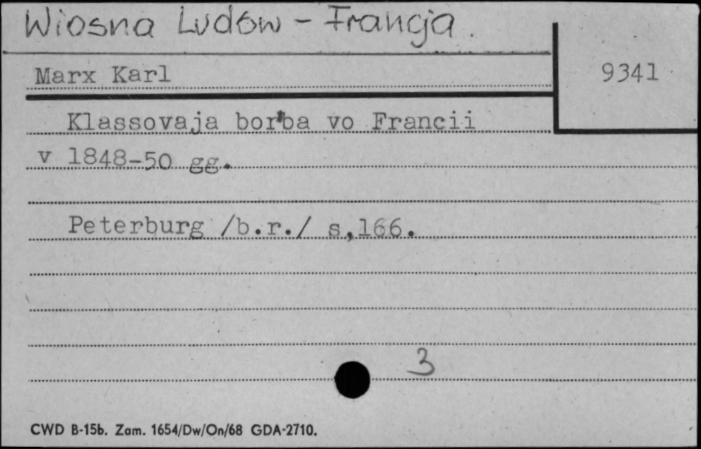 Wiosna Ludów - Francja
Marx Karl
9341
Klassovaja bor'ba vo Francii
v 1848-50 gg.
Peterburg /b.r./ s,166.
3
CWD B-15b. Zam. 1654/Dw/On/68 GDA-2710.